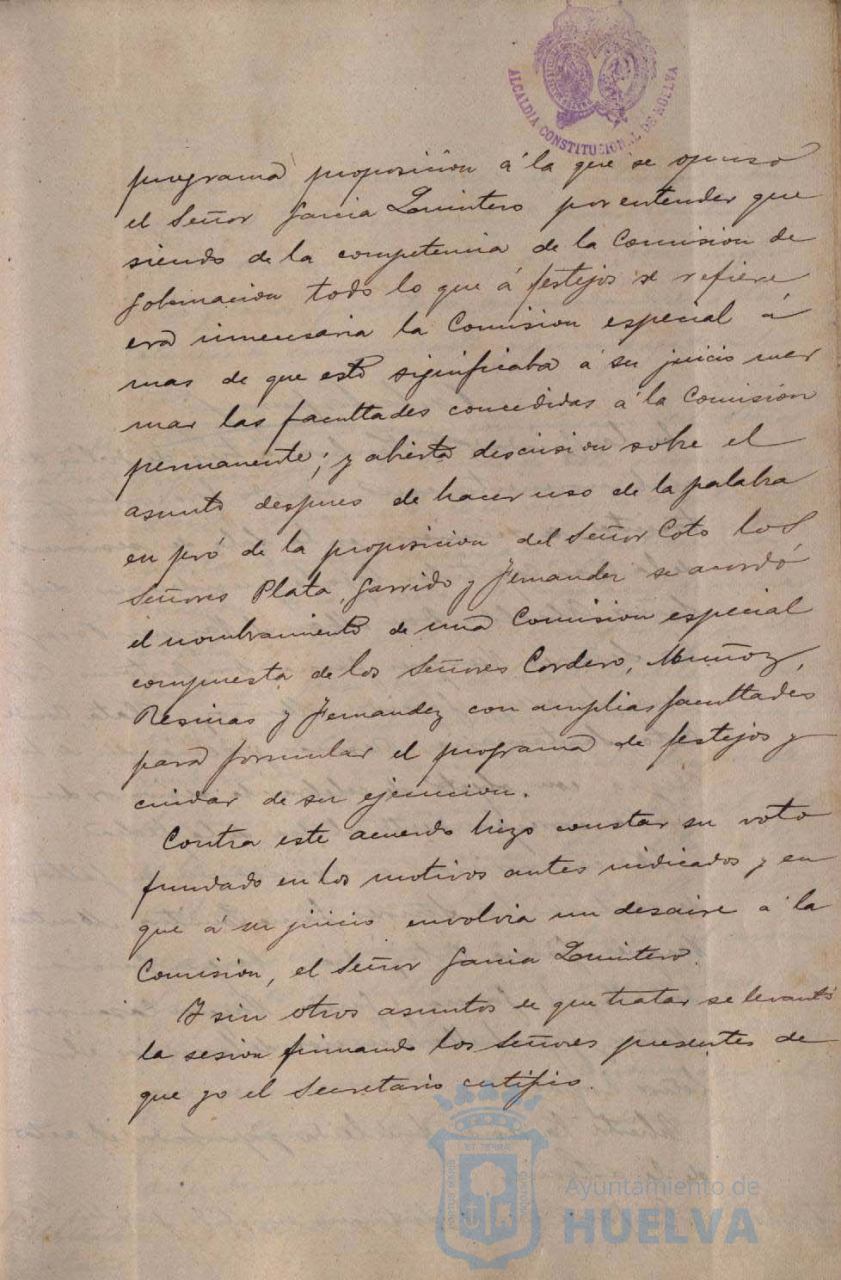 ALCALDIA CONSTITUCIONAL DE HUELVA
programa proposición á la que se opuso
el Señor Garcia Quintero por entender que
siendo de la competencia de la Comision de
Gobernacion todo lo que á festejos se refiere
era innecesaria la Comision especial á
mas de que esto significaba á su juicio mer
mar las facultades concedidas á la Comision
permanente; y abierta discusion sobre el
asunto despues de hacer uso de la palabra
en pró de la proposicion del Señor Coto los
Señores Plata, Garrido y Fernandez se acordó
el nombramiento de una Comision especial
compuesta de los Señores Cordero, Muñoz,
Resinas y Fernandez con amplias facultades
para formular el programa de festejos y
cuidar de su ejecucion.
Contra este acuerdo hizo constar su voto
fundado en los motivos antes indicados y en
que á su juicio envolvia un desaire á la
Comision, el Señor Garcia Quintero.
Y sin otros asuntos de que tratar se levantó
la sesion firmando los Señores presentes de
que yo el Secretario certifico.
Ayuntamiento de
HUELVA